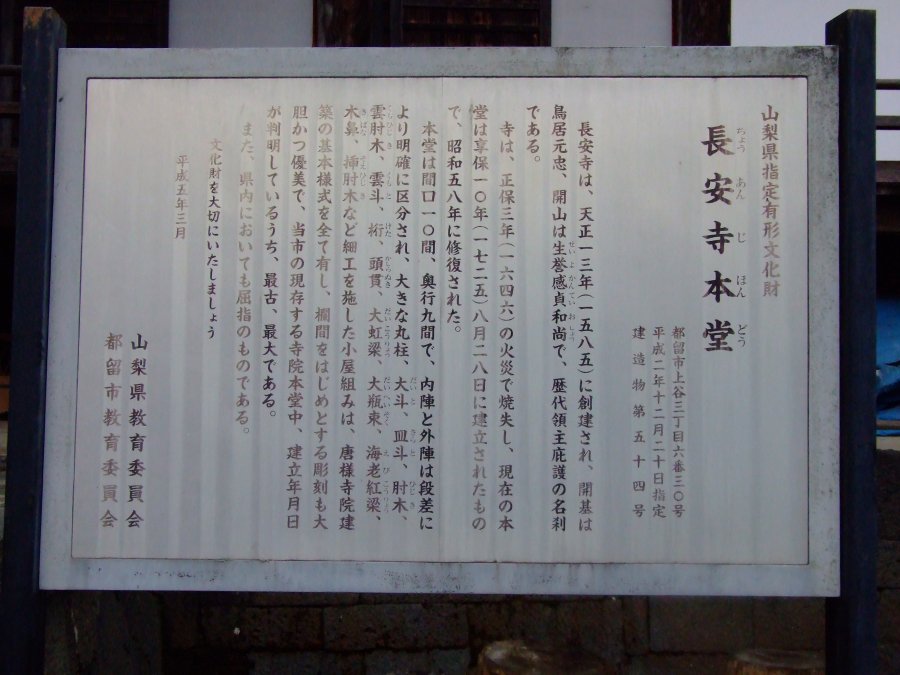 山梨県指定有形文化財
長安寺本堂
ちょうあんじほんどう
都留市上谷三丁目六番三〇号
平成二年十二月二十日指定
建造物第五十四号
長安寺は、天正一三年（一五八五）に創建され、開基は
鳥居元忠、開山は生誉感貞和尚で、歴代領主庇護の名刹
せいよかんていおしょう
である。
寺は、正保三年（一六四六）の火災で焼失し、現在の本
堂は享保一〇年（一七二五）八月二八日に建立されたもの
で、昭和五八年に修復された。
本堂は間口一〇間、奥行九間で、内陣と外陣は段差に
より明確に区分され、大きな丸柱、大斗、皿斗、肘木、
雲肘木、雲斗、桁、頭貫、大虹梁、大瓶束、海老紅梁、
木鼻、挿肘木など細工を施した小屋組みは、唐様寺院建
築の基本様式を全て有し、欄間をはじめとする彫刻も大
胆かつ優美で、当市の現存する寺院本堂中、建立年月日
が判明しているうち、最古、最大である。
また、県内においても屈指のものである。
文化財を大切にいたしましょう
平成五年三月
山梨県教育委員会
都留市教育委員会